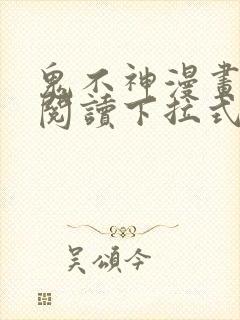 鬼不神漫畫
閱讀下拉式
吳頌今